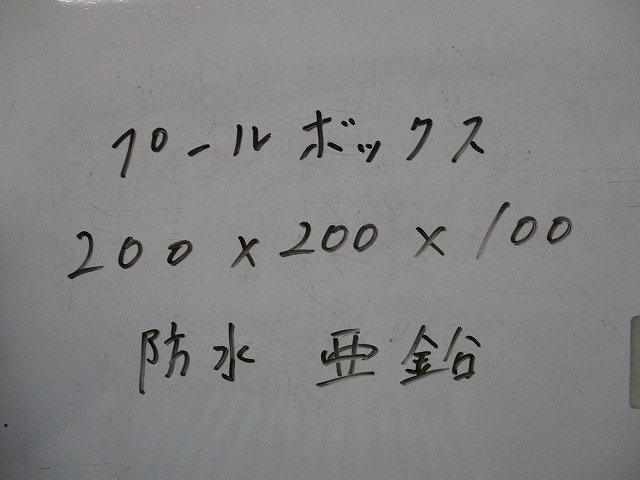 プールボックス
200×200×100
防水 亜鉛